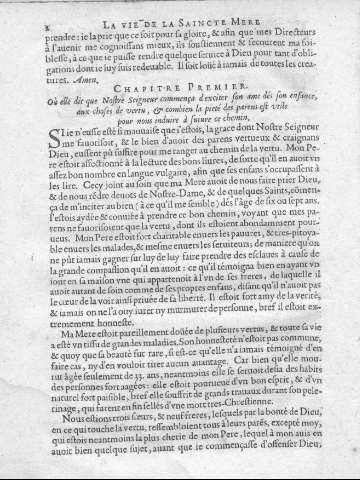 2 LA VIE DE LA SAINCTE MERE
prendre: ie la prie que ce soit pour sa gloire, & afin que mes Directeurs
à l'auenir me cognoissans mieux, ils soustiennent & secourent ma foi-
blesse, à ce que ie puisse rendre quelque seruice à Dieu pour tant d'obli-
gations dont ie luy suis redeuable. Il soit loüé à iamais de toutes les crea-
tures. Amen.
CHAPITRE PREMIER.
Où elle dit que Nostre Seigneur commença d'exciter son ame dés son enfance,
aux choses de vertu, & combien la pieté des parens est vtile
pour nous induire à suiure ce chemin.
SI ie n'eusse esté si mauuaise que i'estois, la grace dont Nostre Seigneur
me fauorisoit, & le bien d'auoir des parens vertueux & craignans
Dieu, eussent pû suffire pour me ranger au chemin de la vertu. Mon Pe-
re estoit affectionné à la lecture des bons liures, de sorte qu'il en auoit vn
assez bon nombre en langue vulgaire, afin que ses enfans s'occupassent à
les lire. Cecy joint au soin que ma Mere auoit de nous faire prier Dieu,
& de nous rẽdre deuots de Nostre-Dame, & de quelques Saints, cõmen-
ça de m'inciter au bien (à ce qu'il me semble) dés l'âge de six ou sept ans.
I'estois aydée & conuiée à prendre ce bon chemin, voyant que mes pa-
rens ne fauorisoient que la vertu, dont ils estoient abondamment pour-
ueus. Mon Pere estoit fort charitable enuers les pauures, & tres-pitoya-
ble enuers les malades, & mesme enuers les seruiteurs; de maniere qu'on
ne pût iamais gagner sur luy de luy faire prendre des esclaues à cause de
la grande compassion qu'il en auoit: ce qu'il témoigna bien en ayant vn
iour en sa maison vne qui appartenoit à l'vn de ses freres, de laquelle il
auoit autant de soin comme de ses propres enfans, disant qu'il n'auoit pas
le cœur de la voir ainsi priuée de sa liberté. Il estoit fort amy de la verité,
& iamais on ne l'a ouy iurer ny murmurer de personne, bref il estoit ex-
tremement honneste.
Ma Mere estoit pareillement doüée de plusieurs vertus, & toute sa vie
a esté vn tissu de grandes maladies. Son honnesteté n'estoit pas commune,
& quoy que sa beauté fut rare, si est-ce qu'elle n'a iamais témoigné d'en
faire cas, ny d'en vouloir tirer aucun auantage. Car bien qu'elle mou-
rut âgée seulement de 33. ans, neantmoins elle se seruoit desia des habits
des personnes fort agées: elle estoit pourueuë d'vn bon esprit, & d'vn
naturel fort paisible, bref elle souffrit de grands trauaux durant son pele-
rinage, qui furent en fin sellés d'vne mort tres-Chrestienne.
Nous estions trois sœurs, & neuf freres, lesquels par la bonté de Dieu,
en ce qui touche la vertu, ressembloient tous à leurs parẽs, excepté moy,
qui estois neantmoins la plus cherie de mon Pere, lequel à mon auis en
auoit bien quelque sujet, auant que ie commençasse d'offenser Dieu,